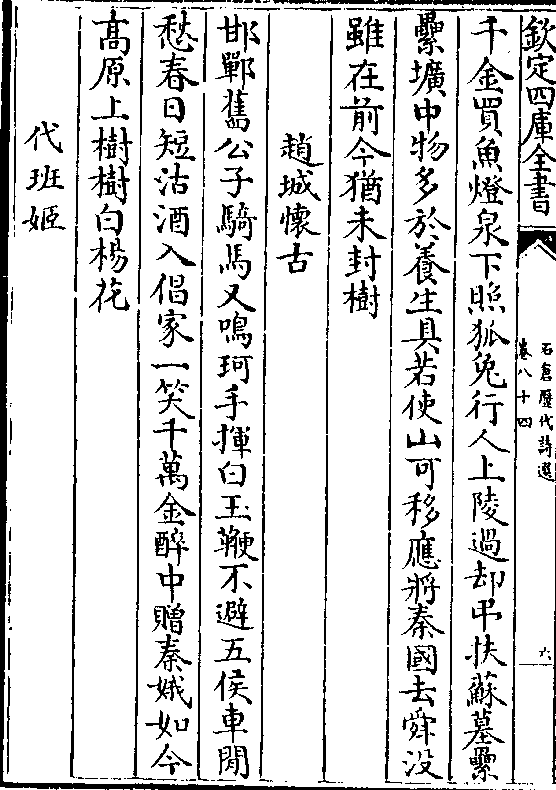 欽定四庫全書
石倉歷代詩選
卷八十四
六
千金買魚燈泉下照狐兔行人上陵過却弔扶蘇墓纍
纍壙中物多於養生具若使山可移應將秦國去舜沒
雖在前今猶未封樹
趙城懷古
邯鄲舊公子騎馬又鳴珂手揮白玉鞭不避五侯車閒
愁春日短沽酒入倡家一笑千萬金醉中贈秦娥如今
高原上樹樹白楊花
代班姬